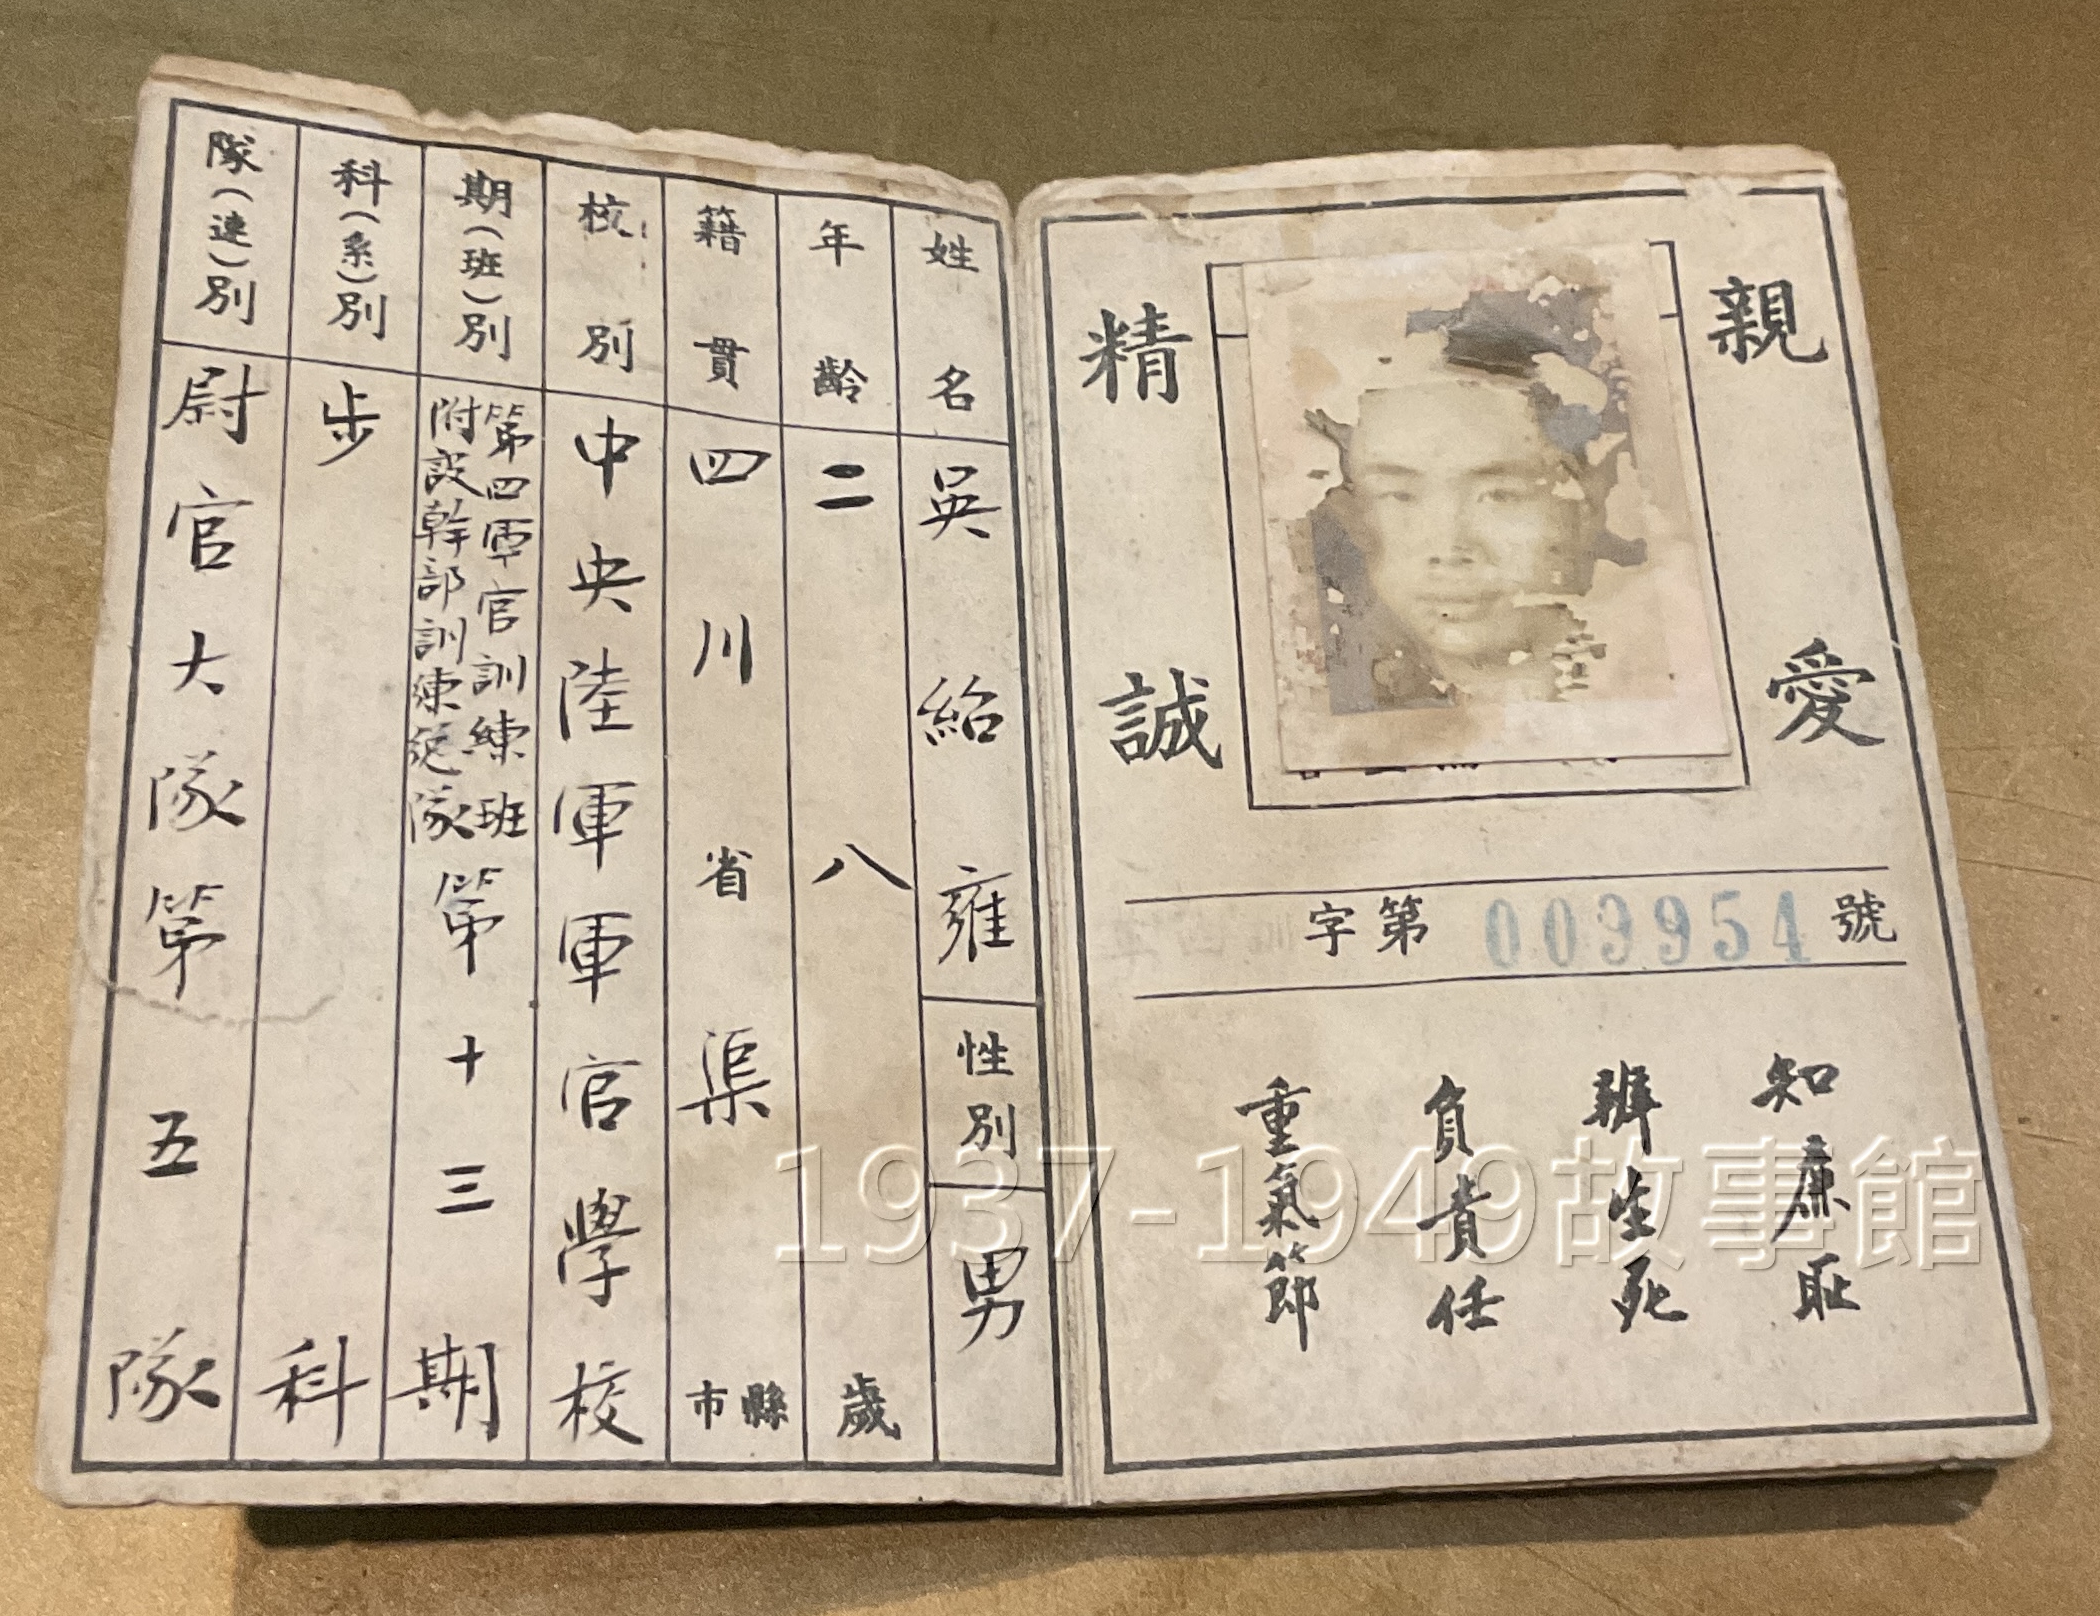 親愛
精誠
字第 003954 號
知廉恥
辨生死
負責任
重氣節
姓名 吳紹雍
性別 男
年齡 二八歲
籍貫 四川省渠縣市
校別 中央陸軍軍官學校
期(班)別 第四軍官訓練班附設幹部訓練總隊第十三期
科(系)別 步科
隊(連)別 尉官大隊第五隊
1937-1949故事館